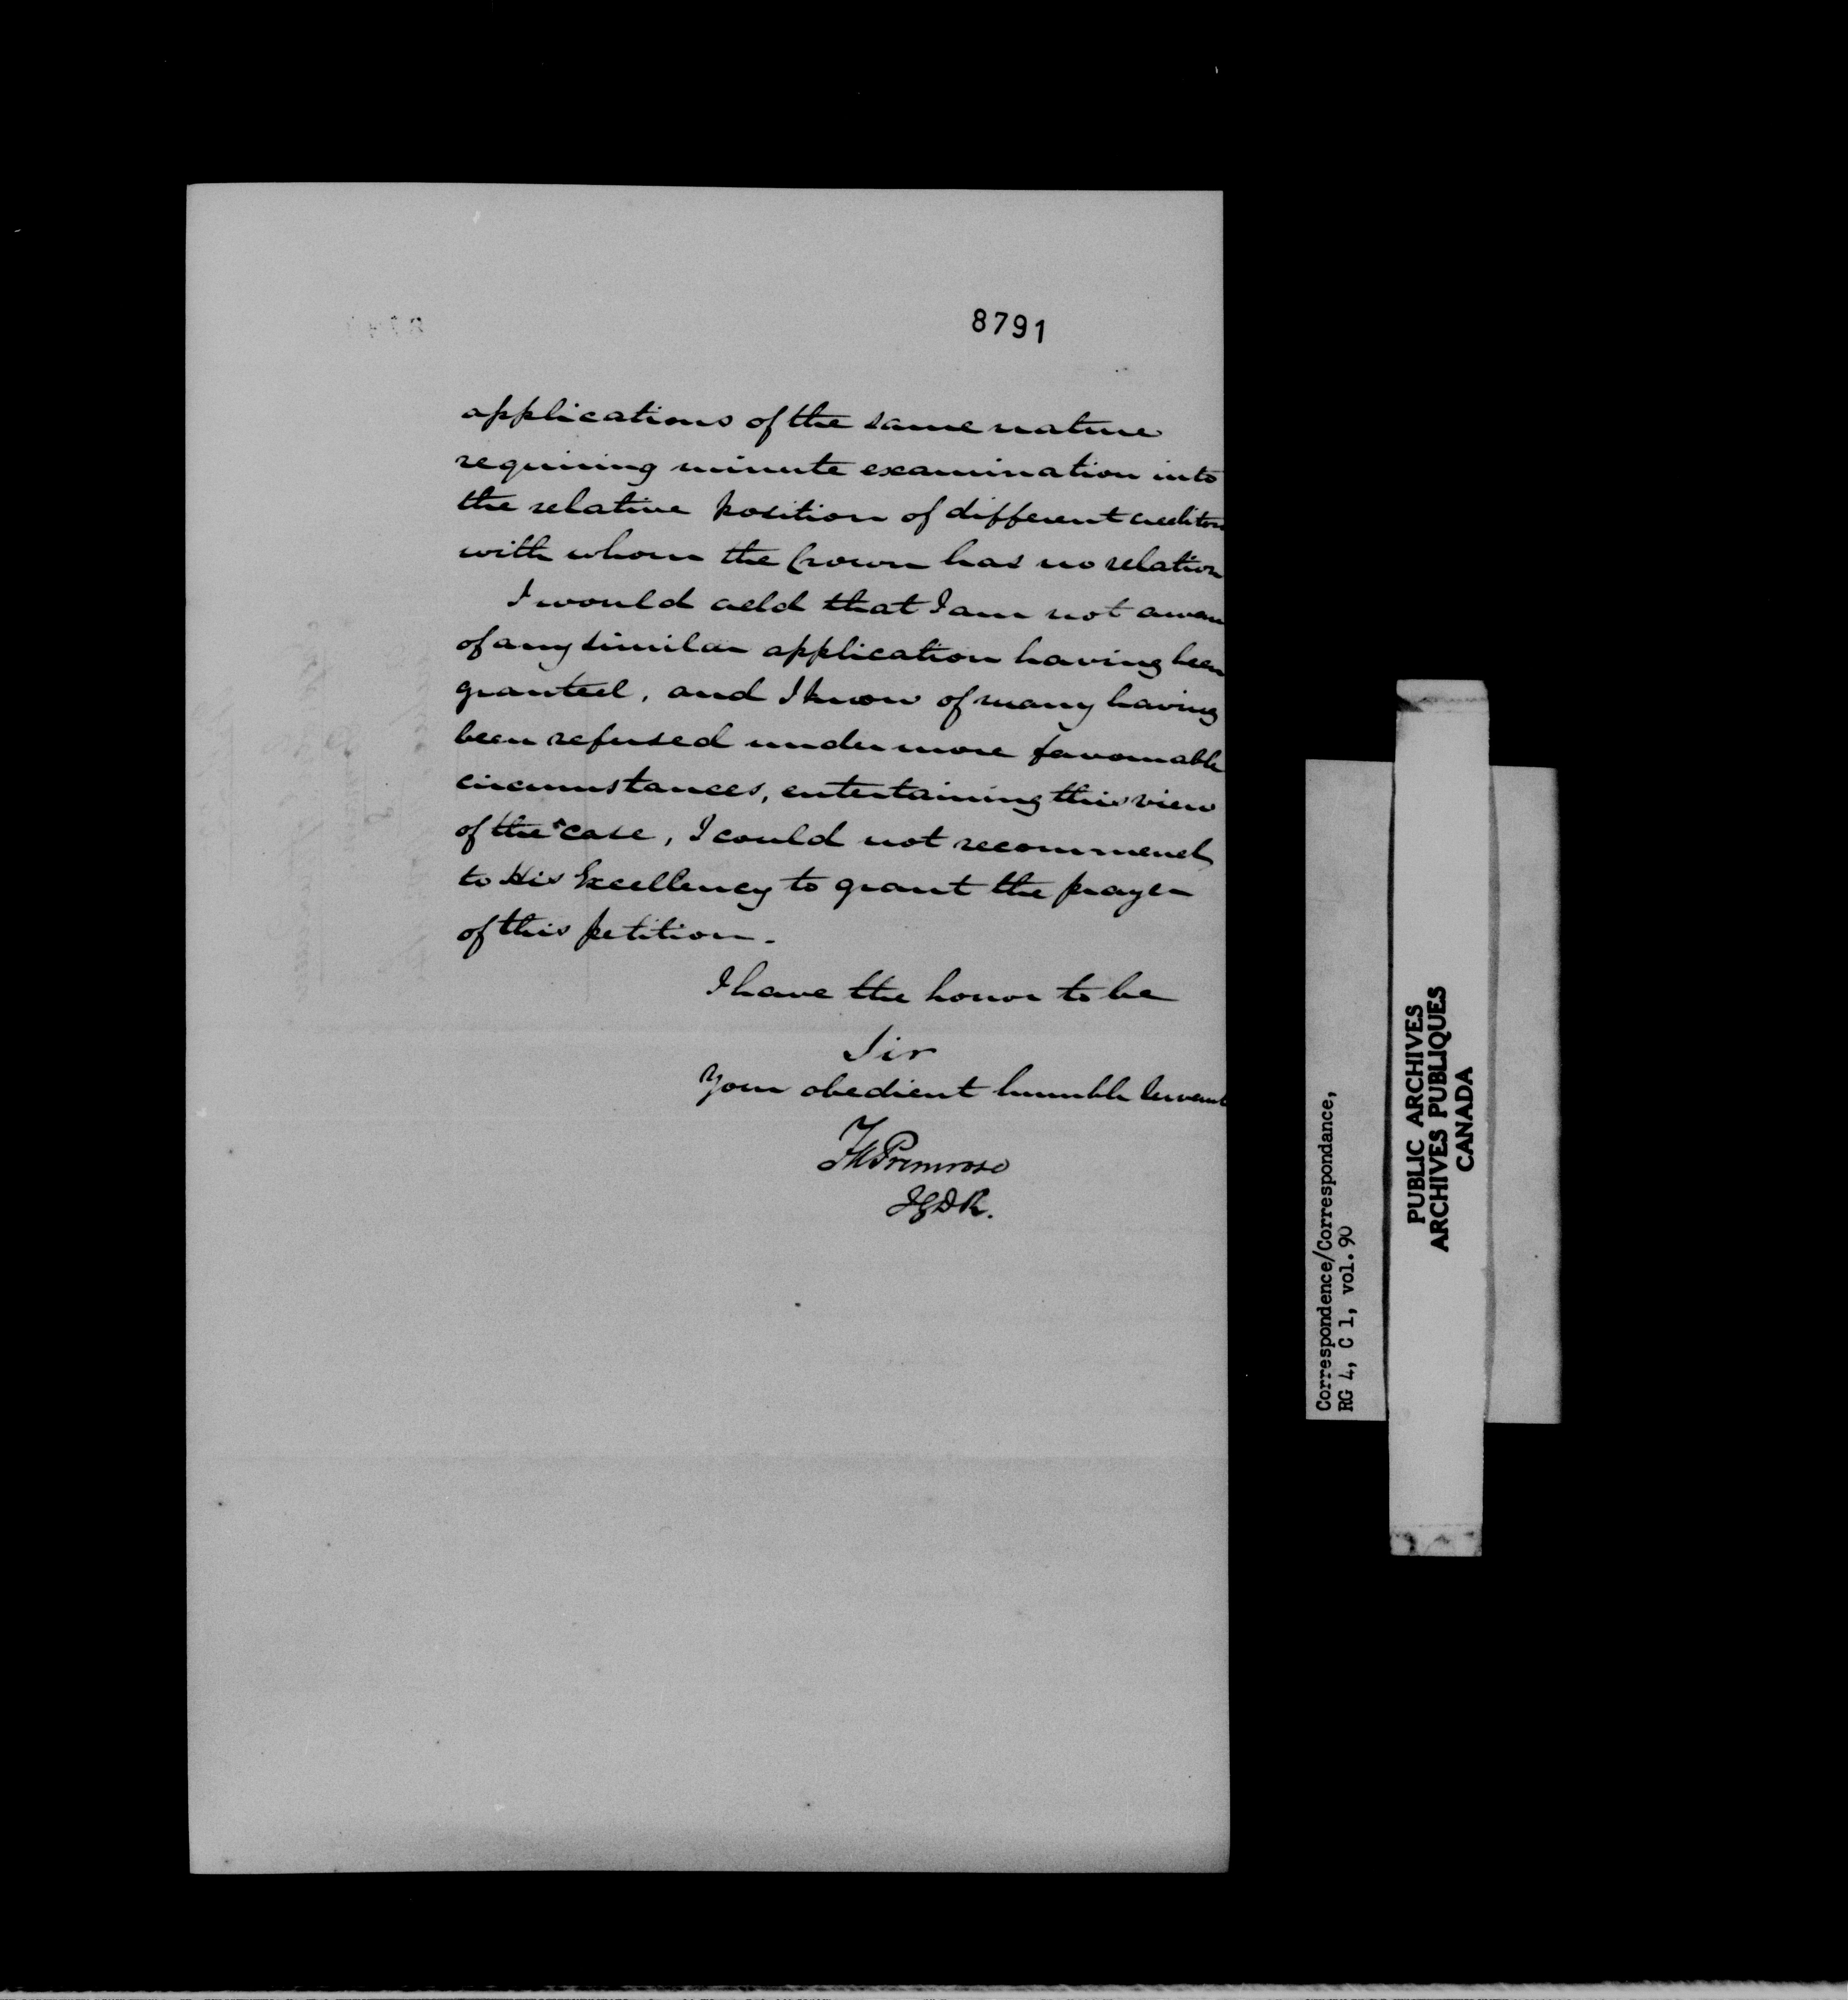 8791
applications of the same nature
requiring minute examination into
the relative position of different creditors
with whom the Crown has no relation
I would add that I am not aware
of any similar application having been
granted, and I know of many having
been refused under more favourable
circumstances, entertaining this view
of the case, I could not recommend
to His Excellency to grant the prayer
of this petition.
I have the honor to be
Sir
Your obedient humble Servant
Primrose
Correspondence/Correspondance,
RG 4, C 1, vol. 90
PUBLIC ARCHIVES
ARCHIVES PUBLIQUES
CANADA